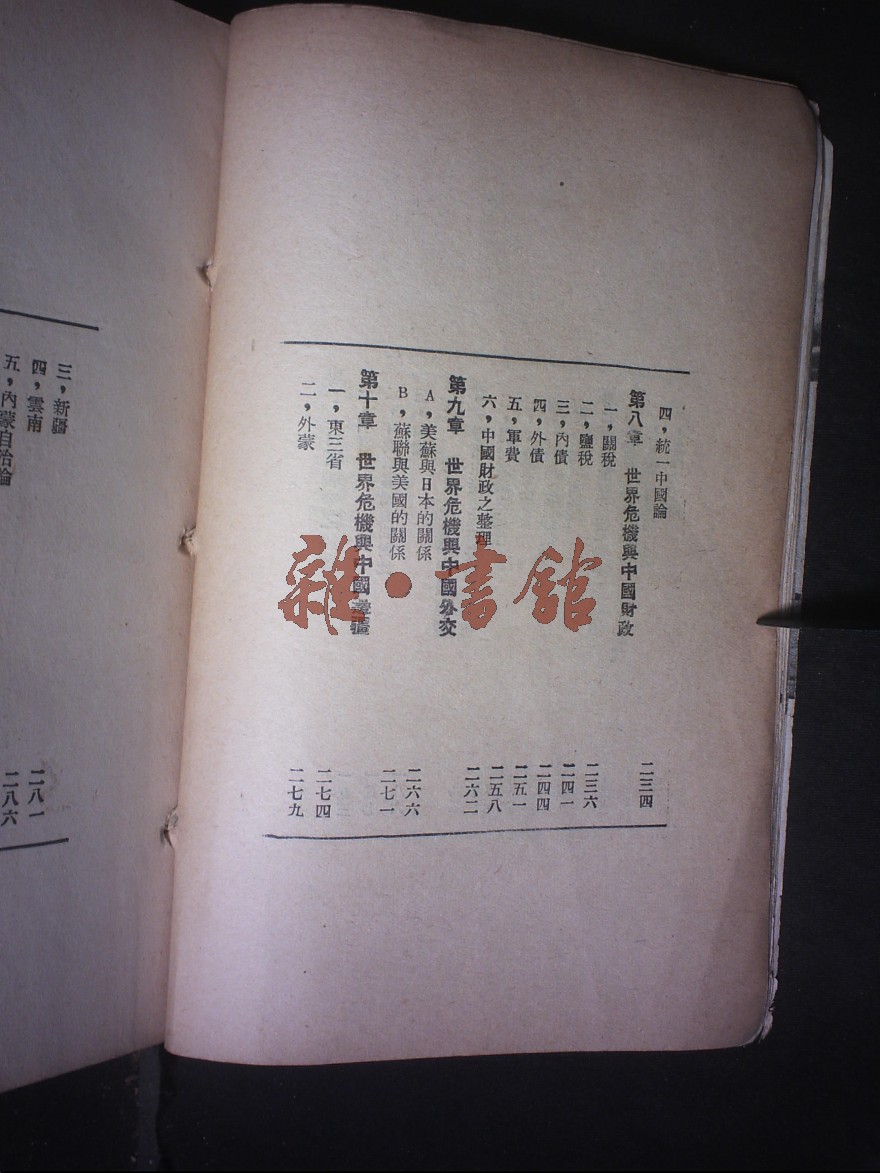 四，統一中國論 二三四
第八章 世界危機與中國財政
一，關稅 二三六
二，鹽稅 二四一
三，內債 二四四
四，外債 二五一
五，軍費 二五八
六，中國財政之整理 二六二
第九章 世界危機與中國外交
A，美蘇與日本的關係 二六六
B，蘇聯與美國的關係 二七一
第十章 世界危機與中國邊疆
一，東三省 二七四
二，外蒙 二七九
三，新疆 二八一
四，雲南 二八六
五，內蒙自治論
雜·書館